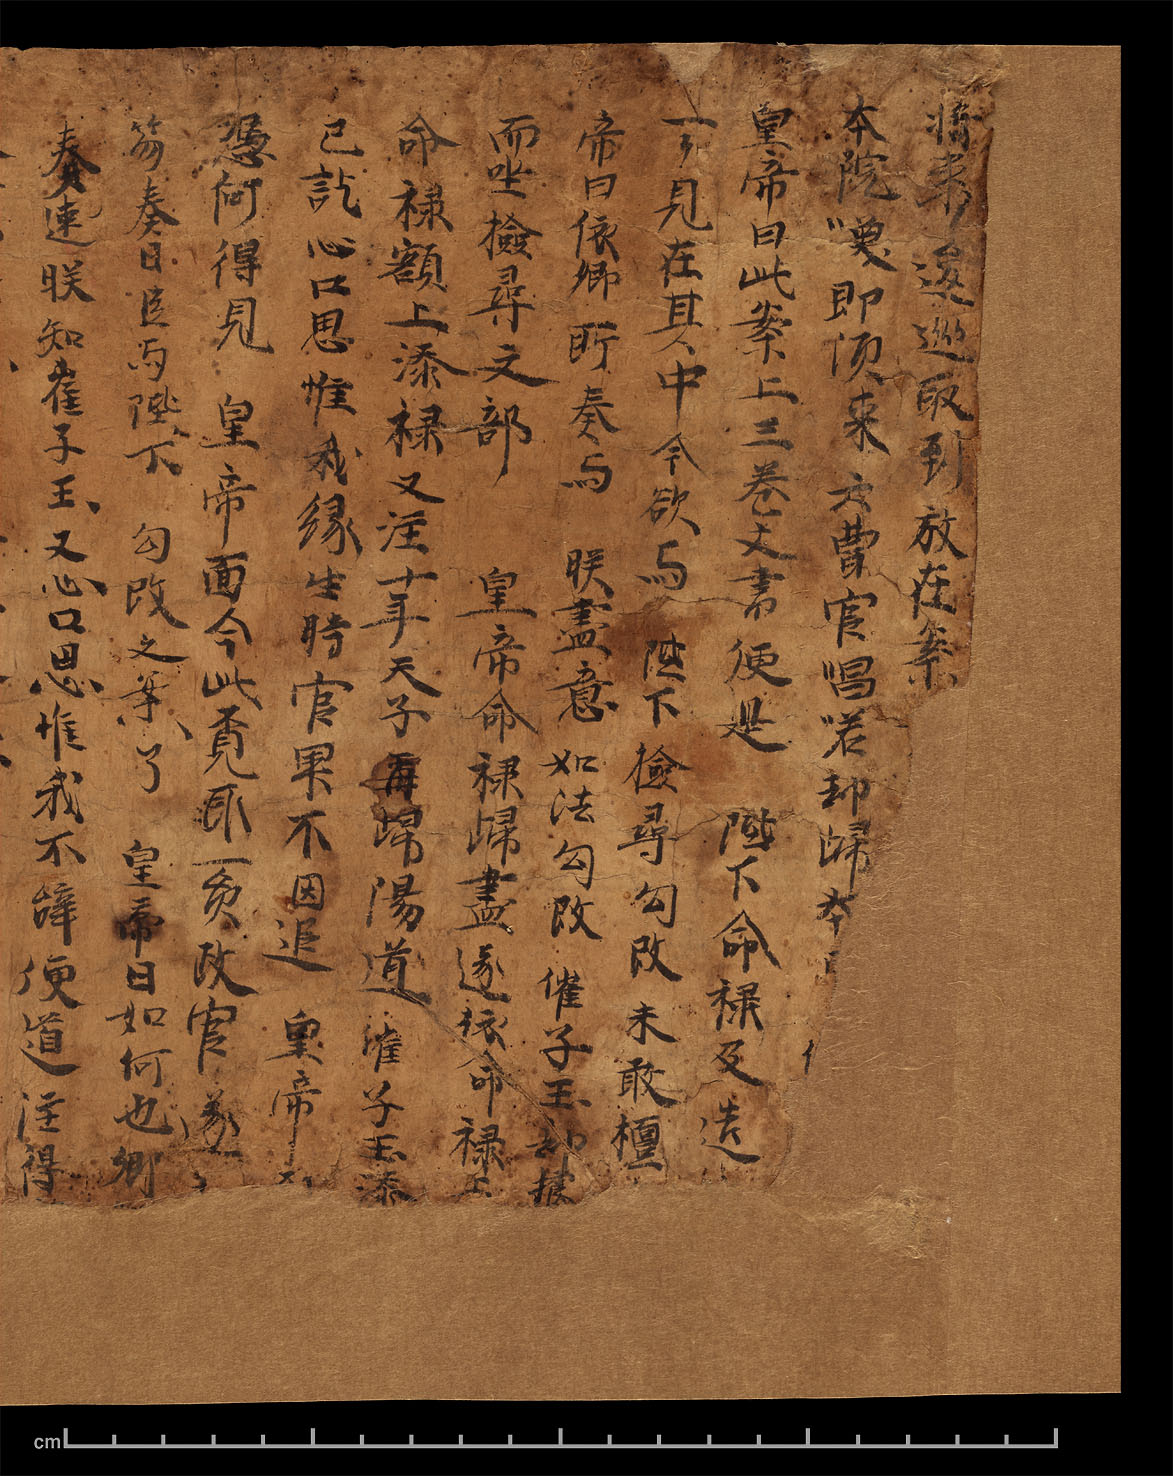 將來逡巡取到放在案
本院嘆即須來六曹官唱喏却歸本
皇帝曰此案上三卷文書便是 陛下命禄及造
一見在其中令欲与 陛下檢尋勾改未敢檀
帝曰依卿所奏与 朕盡意如法勾改 催子玉却據
而坐檢尋文部 皇帝命禄歸盡遂依命禄上
命禄額上添禄又注十年天子再歸陽道 催子玉添
已訖心口思惟我緣生時官果不因追 皇帝
憑何得見 皇帝面今此覓取一負改官遂
笏奏曰臣与陛下 勾改之業了 皇帝曰如何也卿
奏速朕知崔子玉又心口思惟我不辞便道注得